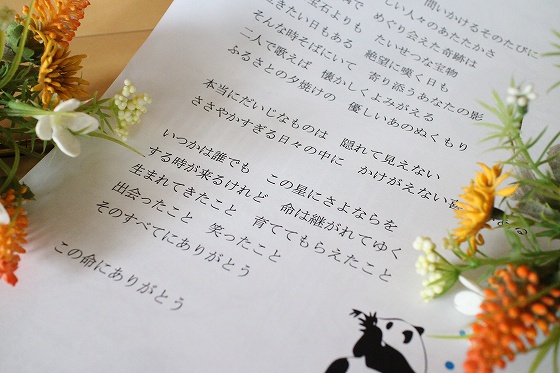 問いかけるそのたびに
しい人々のあたたかさ
で めぐり会えた奇跡は
宝石よりも たいせつな宝物
きたい日もある 絶望に嘆く日も
そんな時そばにいて 寄り添うあなたの影
二人で歌えば 懐かしくよみがえる
ふるさとの夕焼けの 優しいあのぬくもり
本当にだいじなものは 隠れて見えない
ささやかすぎる日々の中に かけがえない
いつかは誰でも この星にさよならを
する時が来るけれど 命は継がれてゆく
生まれてきたこと 育ててもらえたこと
出会ったこと 笑ったこと
そのすべてにありがとう
この命にありがとう